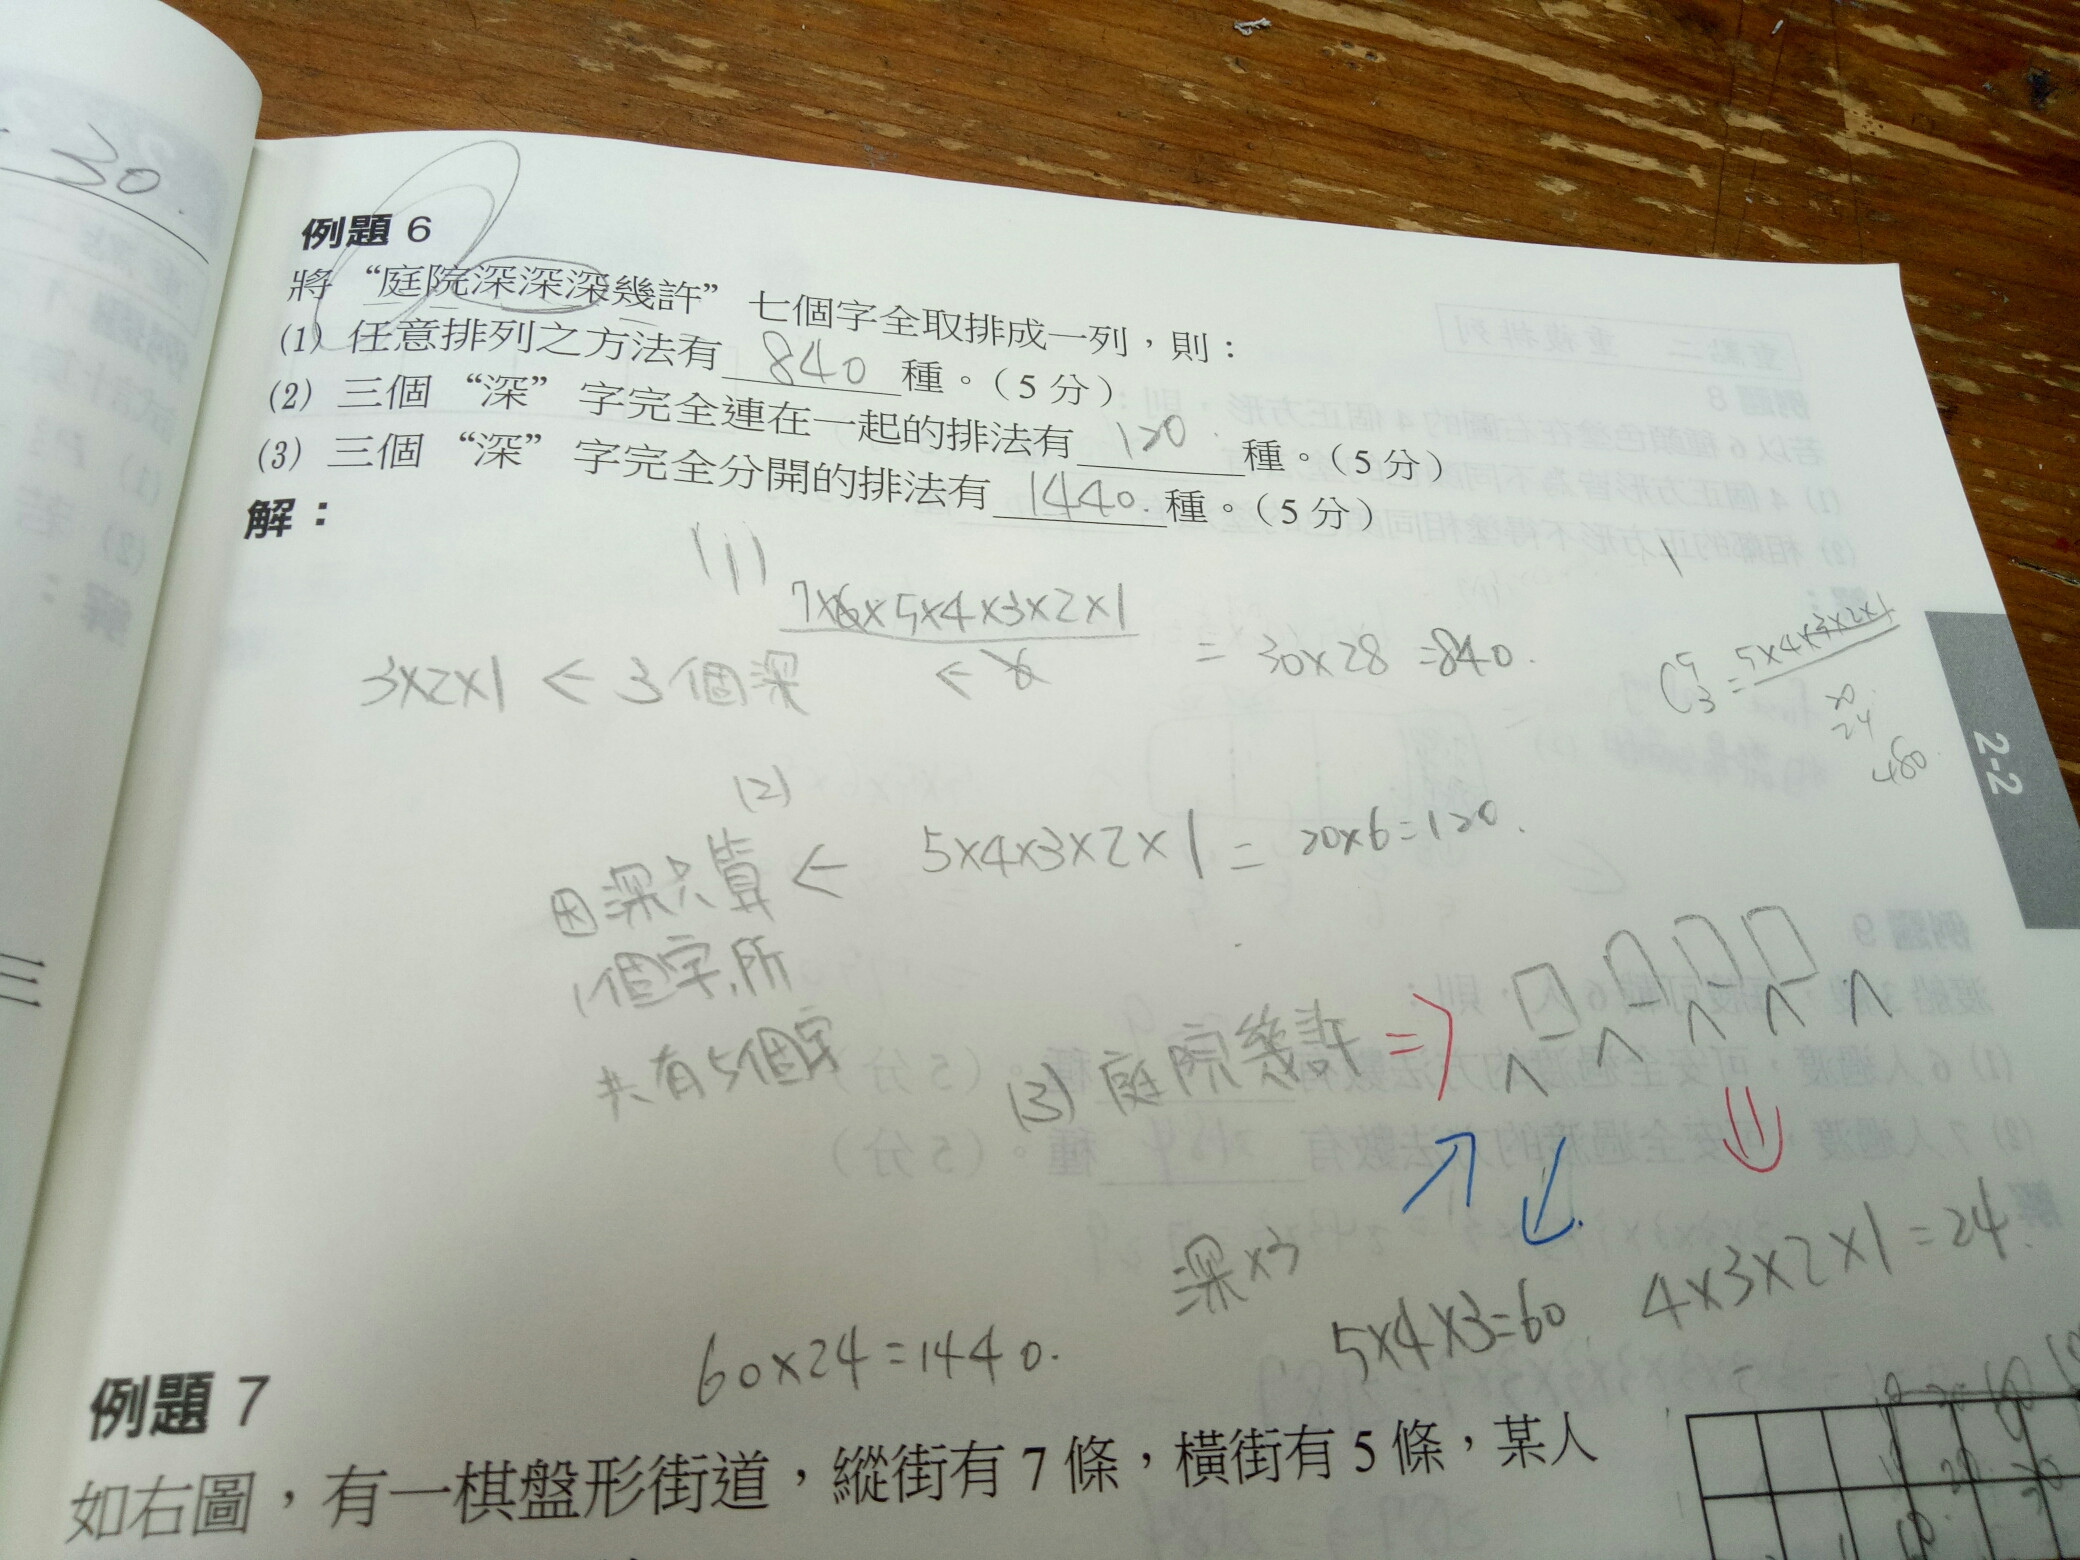 30
例題 6
將“庭院深深深幾許”七個字全取排成一列，則：
(1) 任意排列之方法有 840 種。（5 分）
(2) 三個“深”字完全連在一起的排法有 120 種。（5 分）
(3) 三個“深”字完全分開的排法有 1440. 種。（5 分）
解：
(1)
7×6×5×4×3×2×1
3×2×1 ← 3個深 ← 6 = 30×28 = 840.
C⁵₃ = 5×4×3×2×1
24
480.
2-2
(2)
因深只算 ← 5×4×3×2×1 = 20×6=120.
1個字,所
共有5個字
(3) 庭院幾許 ⇒
深×3
5×4×3=60
4×3×2×1=24.
60×24=1440.
例題 7
如右圖，有一棋盤形街道，縱街有 7 條，橫街有 5 條，某人